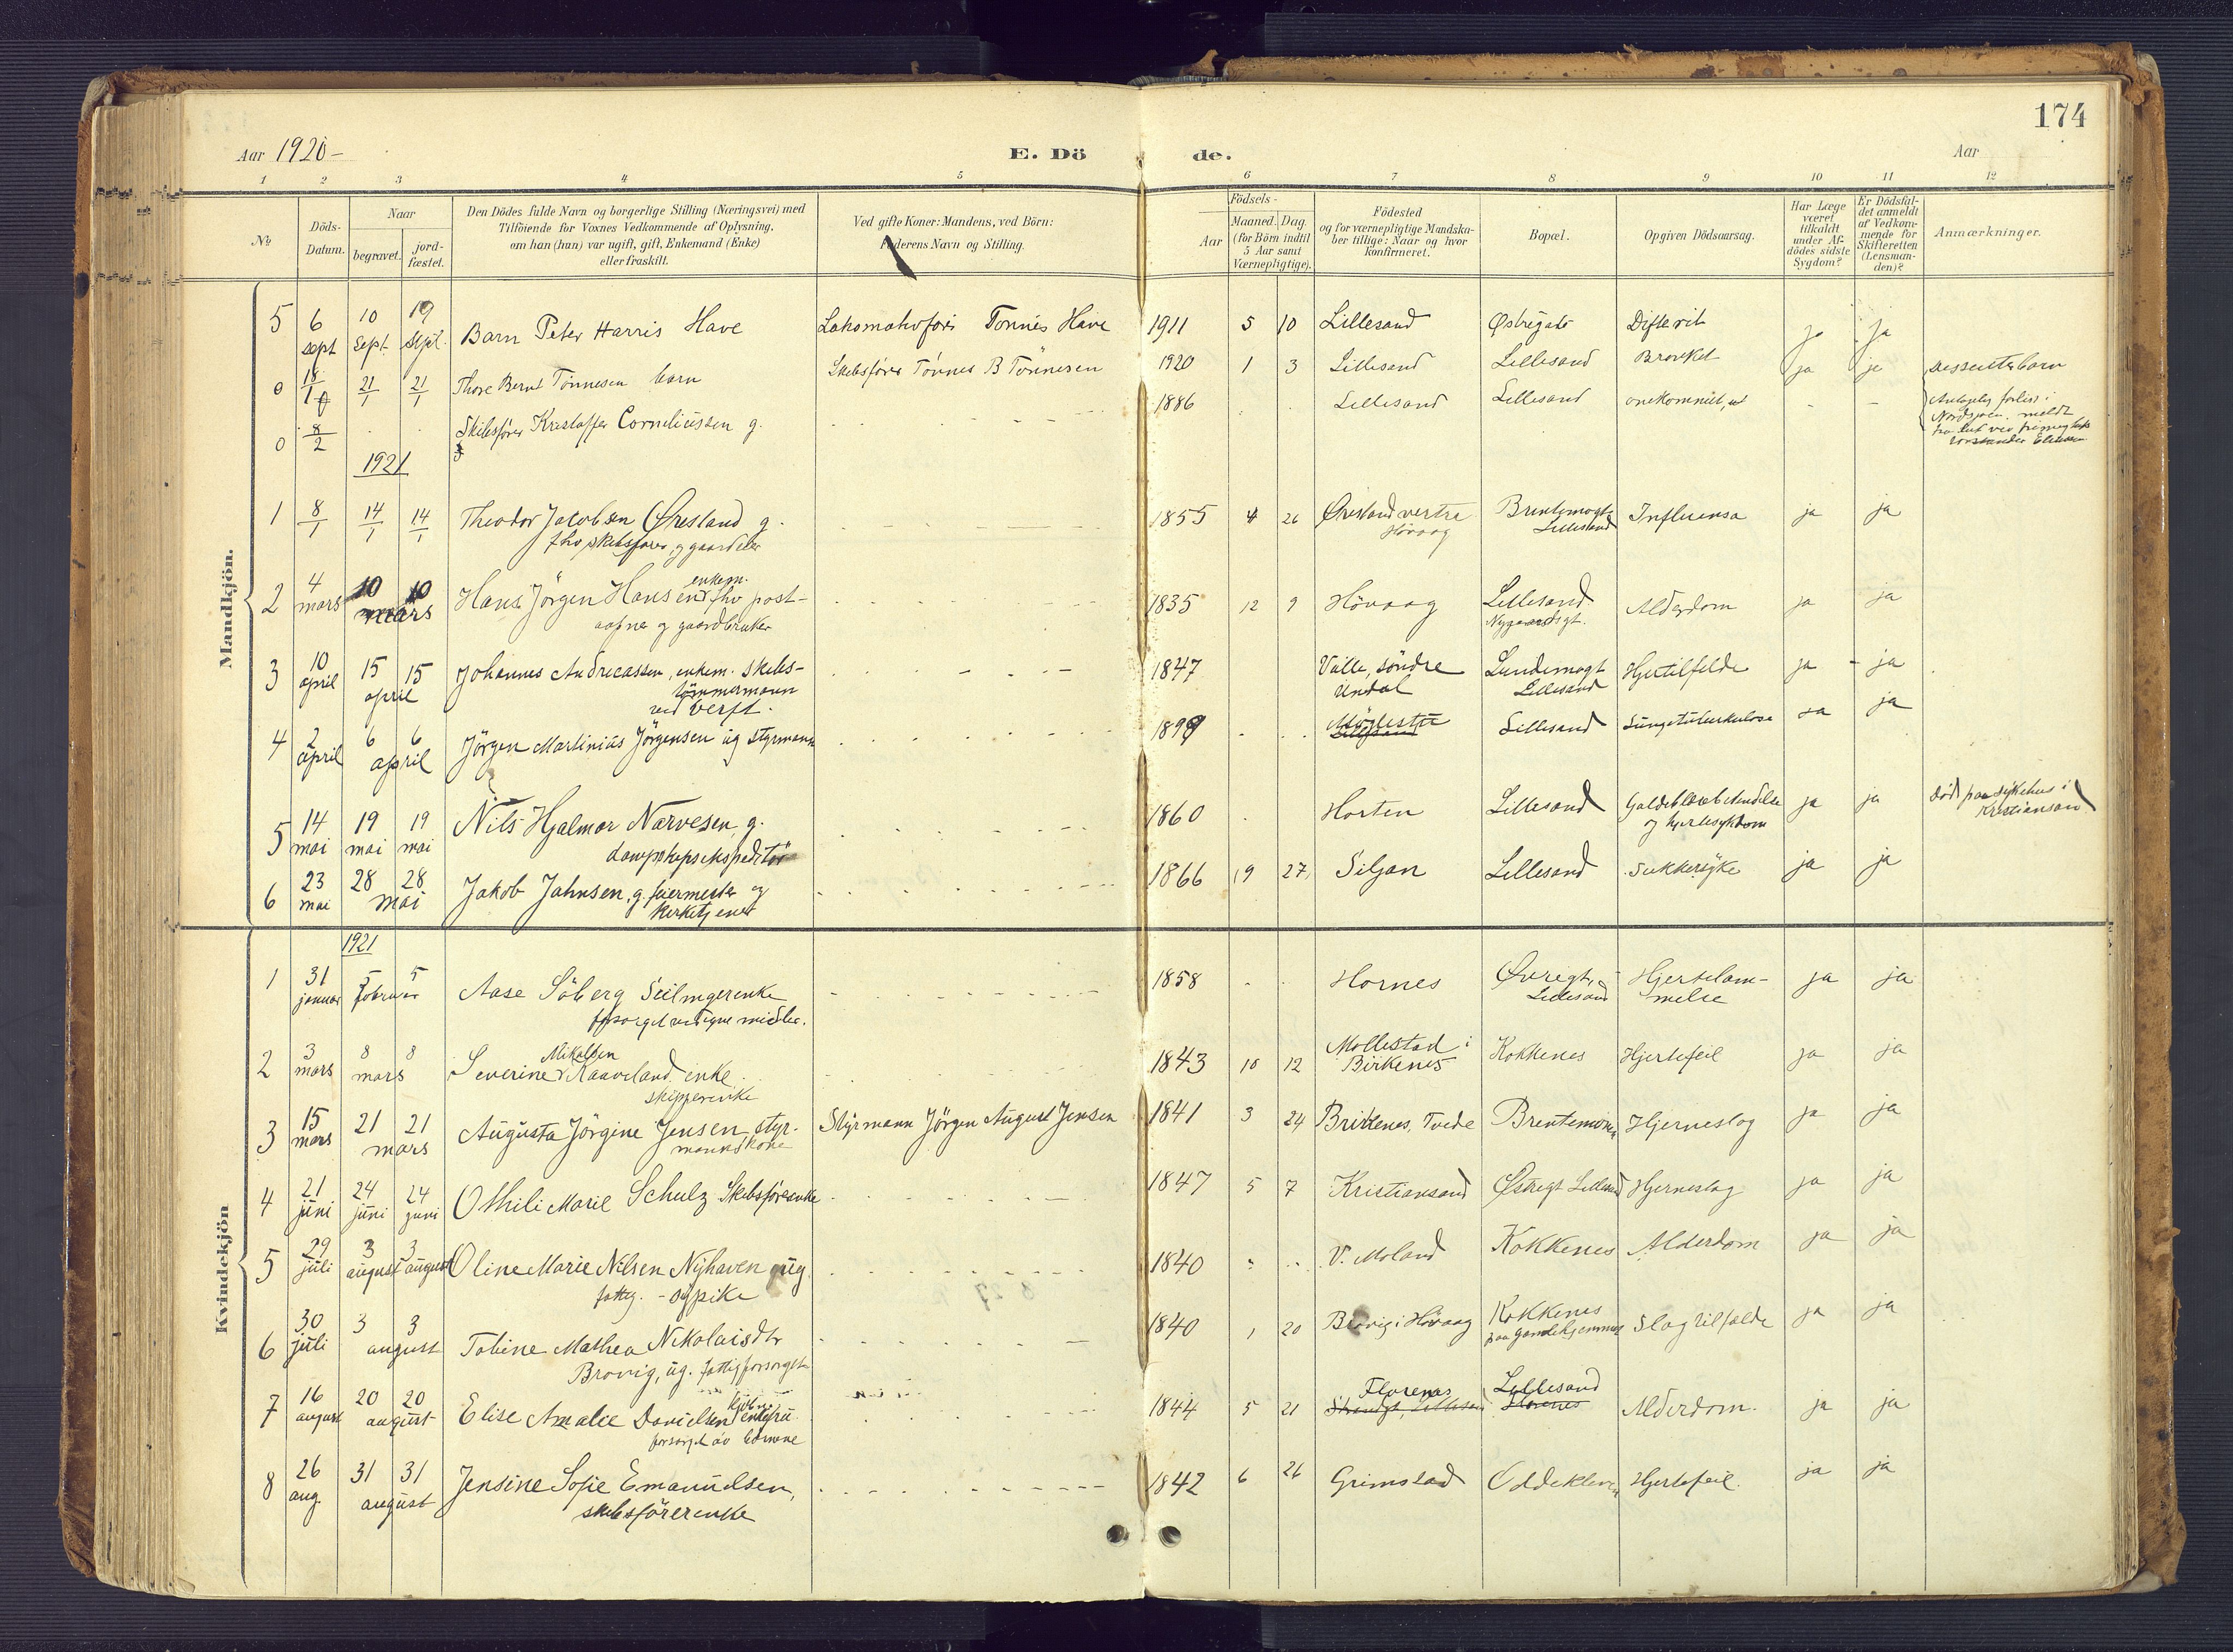 174
Aar 1920 –
E. Dö de.
Aar
1 2 3 4 5 6 7 8 9 10 11 12
No
Döds-Datum.
Naar
begravet.
jord-fæstet.
Den Dödes fulde Navn og borgerlige Stilling (Næringsvei) med
Tilföiende for Voxnes Vedkommende af Oplysning,
om han (hun) var ugift, gift, Enkemand (Enke)
eller fraskilt.
Ved gifte Koner: Mandens, ved Börn:
Faderens Navn og Stilling.
Födsels-
Aar
Maaned. Dag.
(for Börn indtil
5 Aar samt
Værnepligtige).
Födested
og for værnepligtige Mandska-
ber tillige: Naar og hvor
konfirmeret.
Bopæl.
Opgiven Dödsaarsag.
Har Læge
været
tilkaldt
under Af-
dödes sidste
Sygdom?
Er Dödsfal-
det anmeldt
af Vedkom-
mende for
Skifteretten
(Lensman-
den)?
Anmærkninger.
Mandkjön.
5 6 sept 10 sept. 19 sept. Barn Peter Harris Have Tønnes Have 1911 5 10 Lillesand Østregate Difterit ja ja
0 18/1 21/1 21/1 Thore Bernt Tönnesen barn Skibsfører Tönnes B Tönnesen 1920 1 3 Lillesand Lillesand ja ja dissenterbarn
0 8/2 Skibsfører Kristoffer Corneliussen g. 1886 Lillesand Lillesand
Antagelig forlist i
Nordsjøen. meldt
1921
1 8/1 14/1 14/1 Theodor Jacobsen Øresland g. 1855 4 26 Øresland vestre Lillesand Influensa ja ja
fhv skibsfører og gaardeier Hövaag
2 4 mars 10 10 mars Hans Jörgen Hansen enkem. fhv post- 1835 12 9 Hövaag Lillesand Alderdom ja ja
og gaardbruker Nygaardsgt.
3 10 april 15 15 april Johannes Andreassen, enkem. skibs- 1847 Valle, söndre Hjertilfelde ja – ja
tömmermann Undal Lillesand
ved verft.
4 2 april 6 6 april Jörgen Martinius Jörgensen ug styrmann 1899 Lillesand Lungetuberkulose ja ja
5 14 mai 19 mai 19 mai Nils Hjalmar Narvesen, g. 1860 Horten Lillesand ja ja död paa sykehus i
dampskipsekspeditör og hjertesykdom Kristiansand
6 23 mai 28 28 mai Jakob Jahnsen, g. feiermester og 1866 9 27 Siljan Lillesand Sukkersyke ja ja
kirketjener
Kvindekjön
1921
1 31 januar 5 5 februar Aase Söberg Seilmagerenke 1858 Hornes Øvregt, Hjertelam- ja ja
forsörget ved egne midler. Lillesand melse
2 3 mars 8 8 mars Severine Mikalsen Kaaveland enke 1843 10 12 Mollestad i Kokkenes Hjertefeil ja ja
skipperenke Birkenes
3 15 mars 21 21 mars Augusta Jörgine Jensen styr- Styrmann Jörgen August Jensen 1841 3 24 Hjerneslag ja ja
mannskone
4 21 juni 24 juni 24 juni Othili Marie Schulz Skibsförerenke 1847 5 7 Kristiansand Østregt Lillesand Hjerneslag ja ja
5 29 juli 3 august 3 august Oline Marie Nilsen Nyhaven ug. 1840 V. Moland Kokkenes Alderdom ja ja
fattig. – sypike
6 30 juli 3 3 august Tobine Mathea Nikolaisdtr 1840 1 20 Brovig i Hövaag Kokkenes Slagtilfælde ja ja
Brovig, ug. fattigforsorget paa gamlehjemmet
7 16 august 20 20 august Elise Amalie Danielsen enkefru 1844 5 21 Florenes Lillesand Alderdom. ja ja
forsörget av börnene
8 26 aug. 31 31 august Jensine Sofie Emanuelsen, 1842 6 26 Grimstad Hjertefeil. ja ja
skibsförerenke